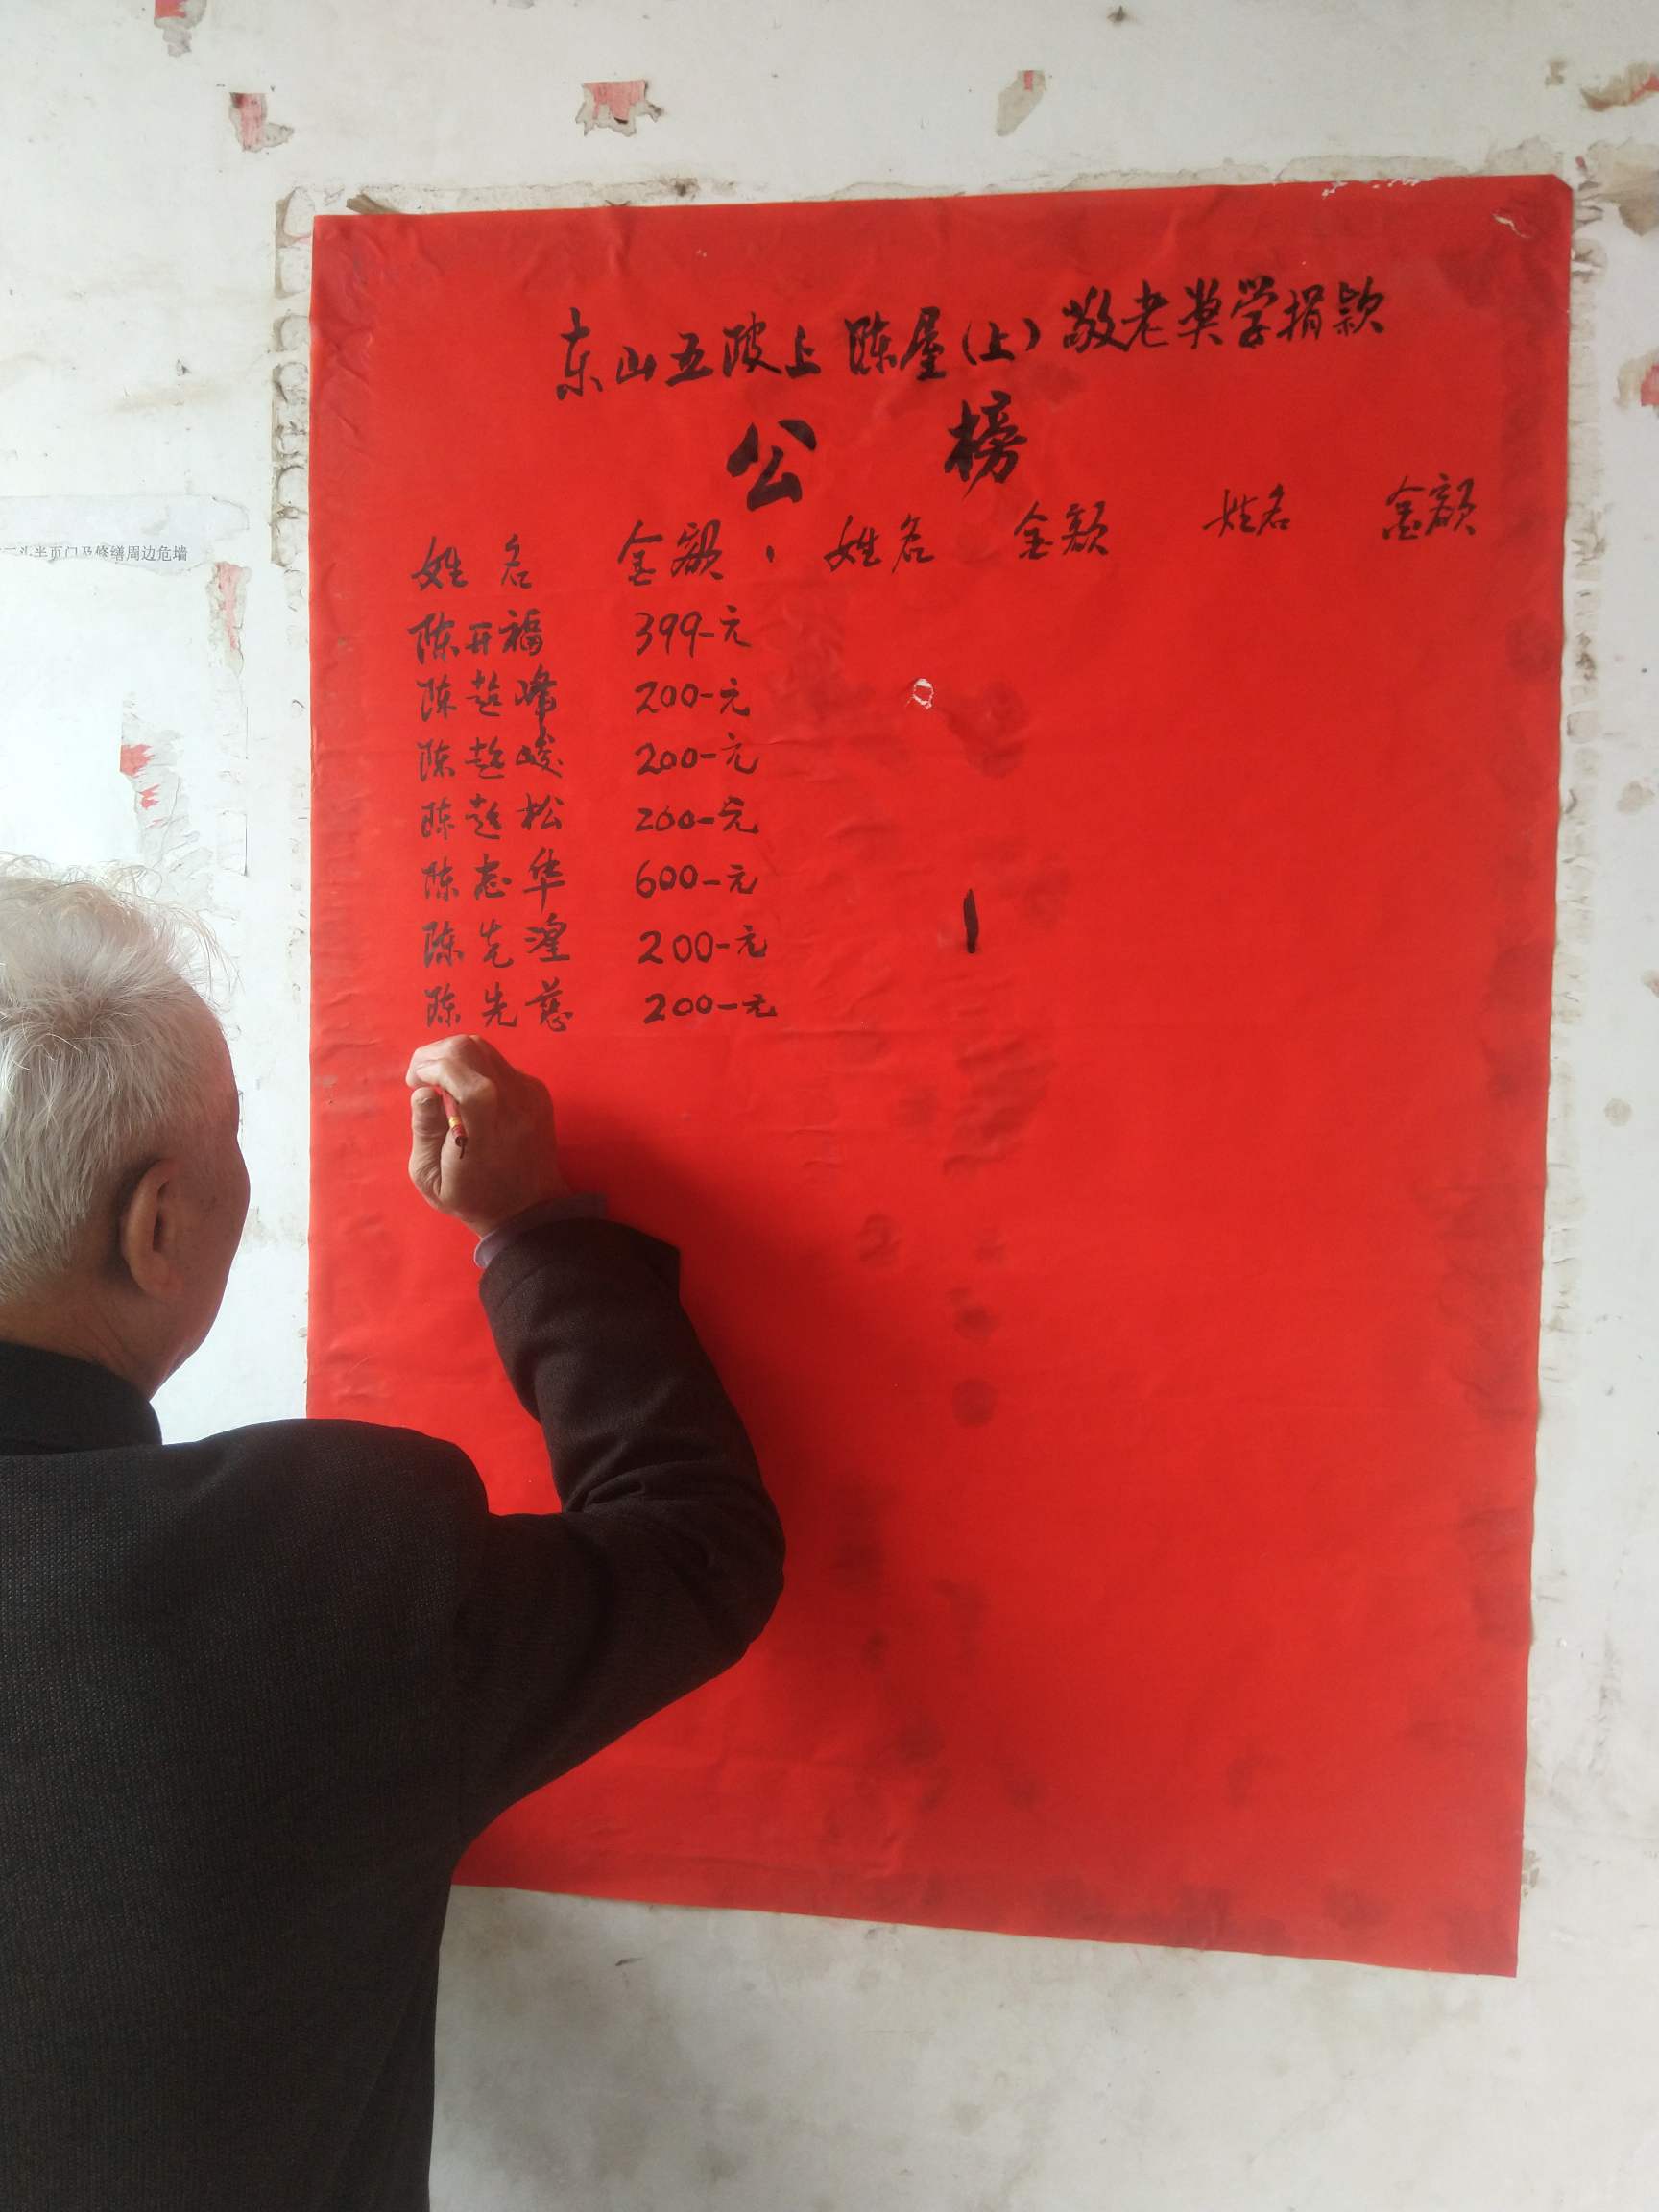 东山五陂上陈屋(上)敬老奖学捐款
公榜
姓名 金额 姓名 金额 姓名 金额
陈开福 399-元
陈超峰 200-元
陈超峻 200-元
陈超松 200-元
陈志华 600-元
陈先湟 200-元
陈先慈 200-元
半页门及修缮周边危墙